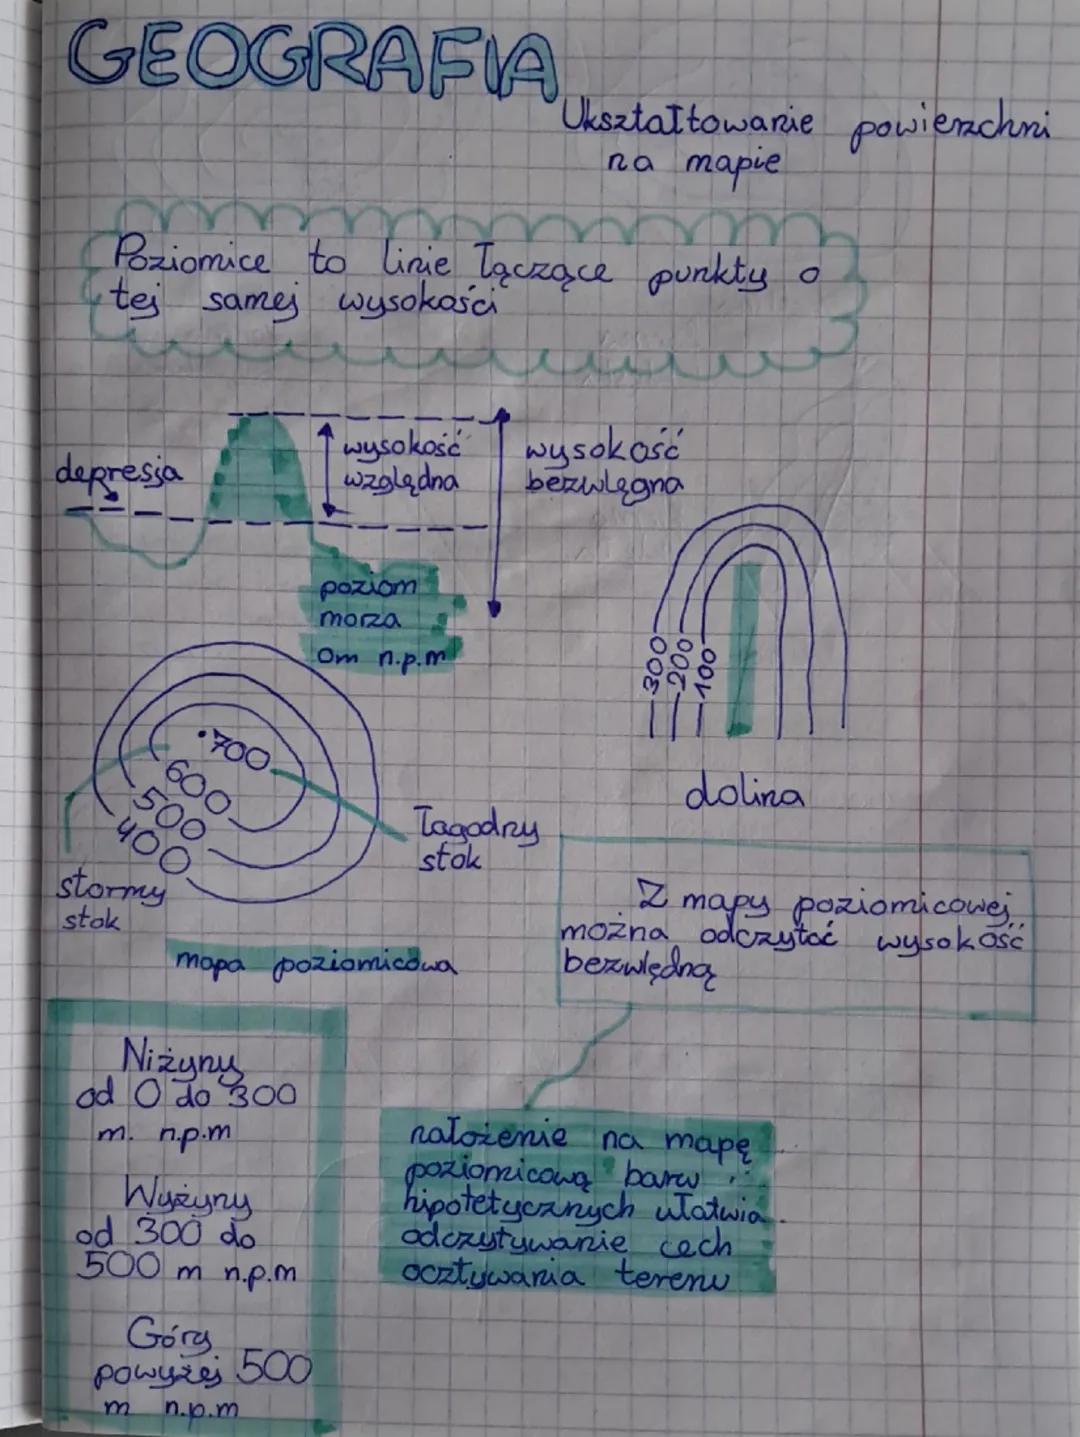 GEOGRAFIA
Ukształtowanie powierzchni
na mapie
Poziomice to linie łączące punkty o
tej samej wysokości
depresja
wysokość
względna
wysokość
bezwlęgna
poziom
morza
0m n.p.m
300
200
100
dolina
700
600
500
400
łagodny
stok
stormy
stok
mapa poziomicowa
Z mapy poziomicowej
można odczytać wysokość
bezwlędną
Niżyny
od 0 do 300
m. n.p.m
Wyżyny
od 300 do
500 m n.p.m
Góry
powyżej 500
m n.p.m
nałożenie na mapę
poziomicową barw
hipotetycznych ułatwia
odczytywanie cech
ocztywania terenu